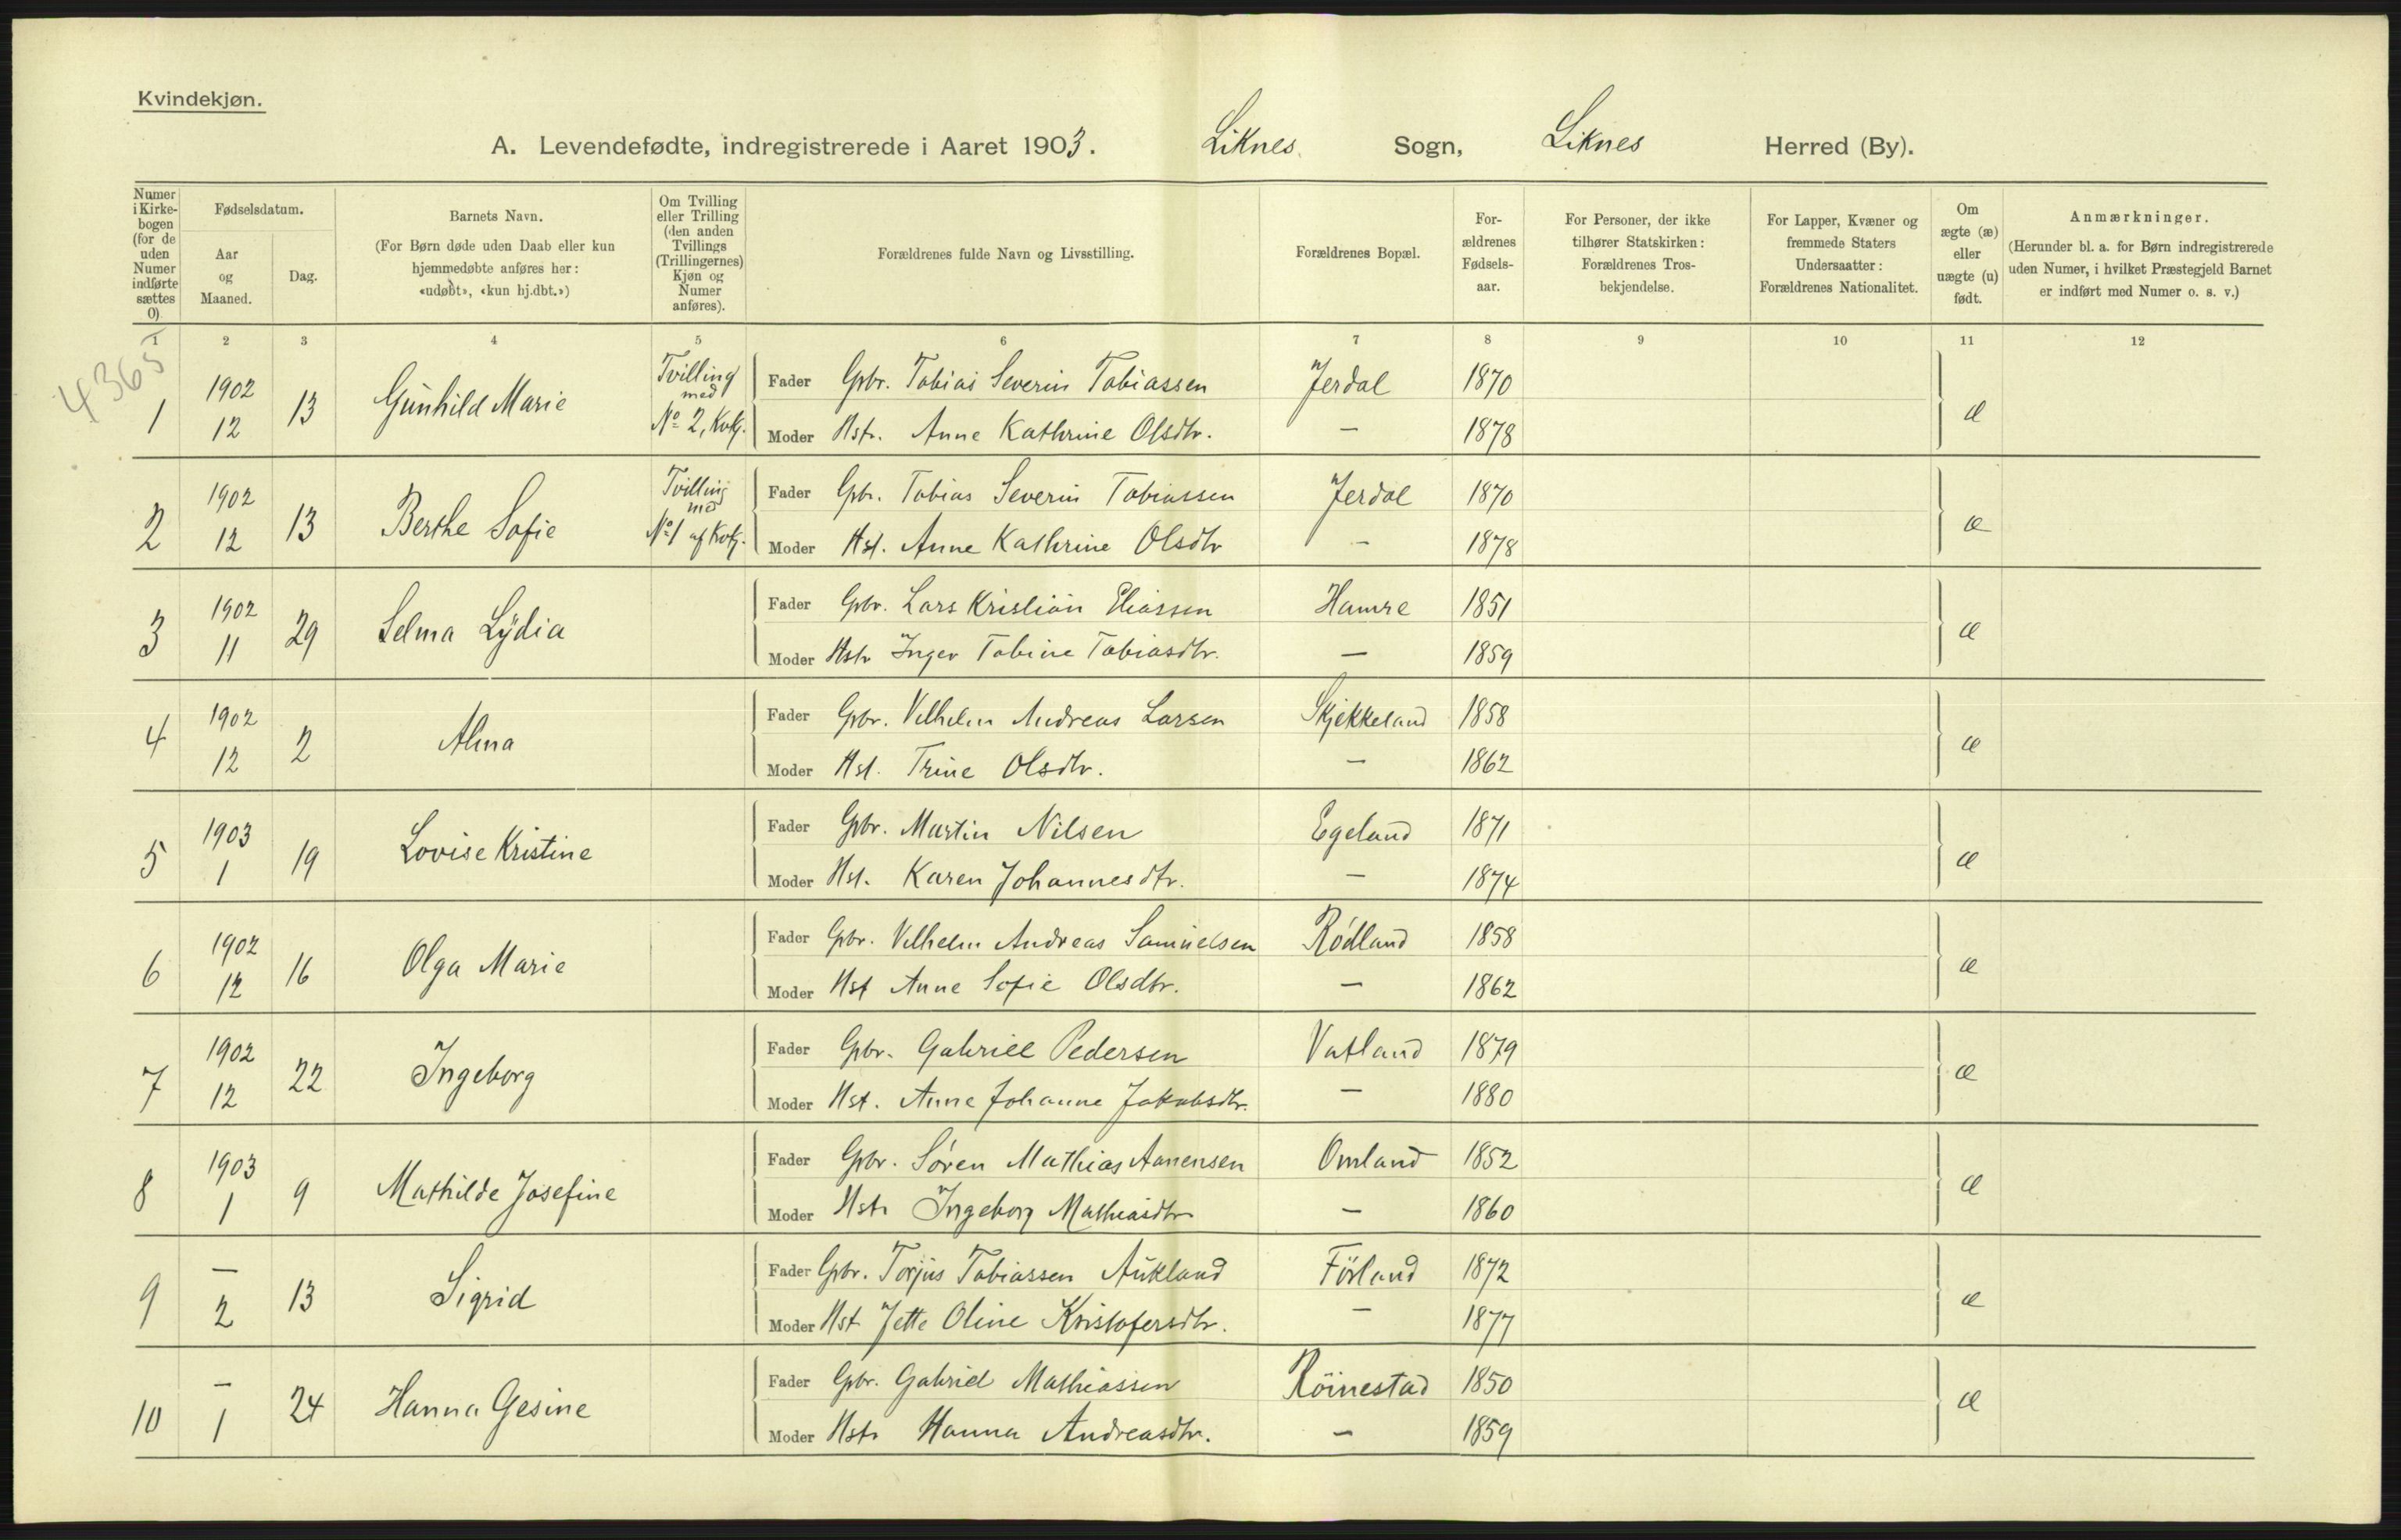 Kvindekjøn.
A. Levendefødte, indregistrerede i Aaret 1903. Liknes Sogn, Liknes Herred (By).
Numer i Kirkebogen (for de uden Numer indførte sættes 0)
Fødselsdatum.
Aar og Maaned.
Dag.
Barnets Navn.
(For Børn døde uden Daab eller kun
hjemmedøbte anføres her:
«udøbt», «kun hj.dbt.»)
Om Tvilling
eller Trilling
(den anden
Tvillings
(Trillingernes)
Kjøn og
Numer
anføres).
Forældrenes fulde Navn og Livsstilling.
Forældrenes Bopæl.
For-
ældrenes
Fødsels-
aar.
For Personer, der ikke
tilhører Statskirken:
Forældrenes Tros-
bekjendelse.
For Lapper, Kvæner og
fremmede Staters
Undersaatter:
Forældrenes Nationalitet.
Om
ægte (æ)
eller
uægte (u)
født.
Anmærkninger.
(Herunder bl. a. for Børn indregistrerede
uden Numer, i hvilket Præstegjeld Barnet
er indført med Numer o. s. v.)
1 2 3 4 5 6 7 8 9 10 11 12
4365
1 1902 12 13 Gunhild Marie Tvilling med No 2, Kvkj.
Fader Gbr. Tobias Severin Tobiassen Jerdal 1870
Moder Hstr. Anne Kathrine Olsdtr. — 1878 æ
2 1902 12 13 Berthe Sofie Tvilling med No 1 af Kvkj.
Fader Gbr. Tobias Severin Tobiassen Jerdal 1870
Moder Hst. Anne Kathrine Olsdtr — 1878 æ
3 1902 11 29 Selma Lydia
Fader Gbr. Lars Kristian Eliassen Hamre 1851
Moder Hstr Inger Tobine Tobiasdtr. — 1859 æ
4 1902 12 2 Alma
Fader Gbr. Vilhelm Andreas Larsen Skjekkeland 1858
Moder Hst. Trine Olsdtr. — 1862 æ
5 1903 1 19 Lovise Kristine
Fader Gbr. Martin Nilsen Egeland 1871
Moder Hst. Karen Johannesdtr. — 1874 æ
6 1902 12 16 Olga Marie
Fader Gbr. Vilhelm Andreas Samuelsen Rödland 1858
Moder Hst Anne Sofie Olsdtr. — 1862 æ
7 1902 12 22 Ingeborg
Fader Gbr. Gabriel Pedersen Vatland 1879
Moder Hst. Anne Johanne Jakobsdtr. — 1880 æ
8 1903 1 9 Mathilde Josefine
Fader Gbr. Søren Mathias Aanensen Omland 1852
Moder Hstr Ingeborg Mathiasdtr — 1860 æ
9 — 2 13 Sigrid
Fader Gbr. Torjus Tobiassen Aukland Förland 1872
Moder Hst Jette Oline Kristofersdtr. — 1877 æ
10 — 1 24 Hanna Gesine
Fader Gbr. Gabriel Mathiassen Röinestad 1850
Moder Hstr Hanna Andreasdtr. — 1859 æ